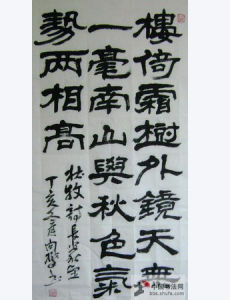 樓倚霜樹外鏡天無
一毫南山與秋色氣
勢兩相高
杜牧詩長安秋望
丁亥
中国书法网